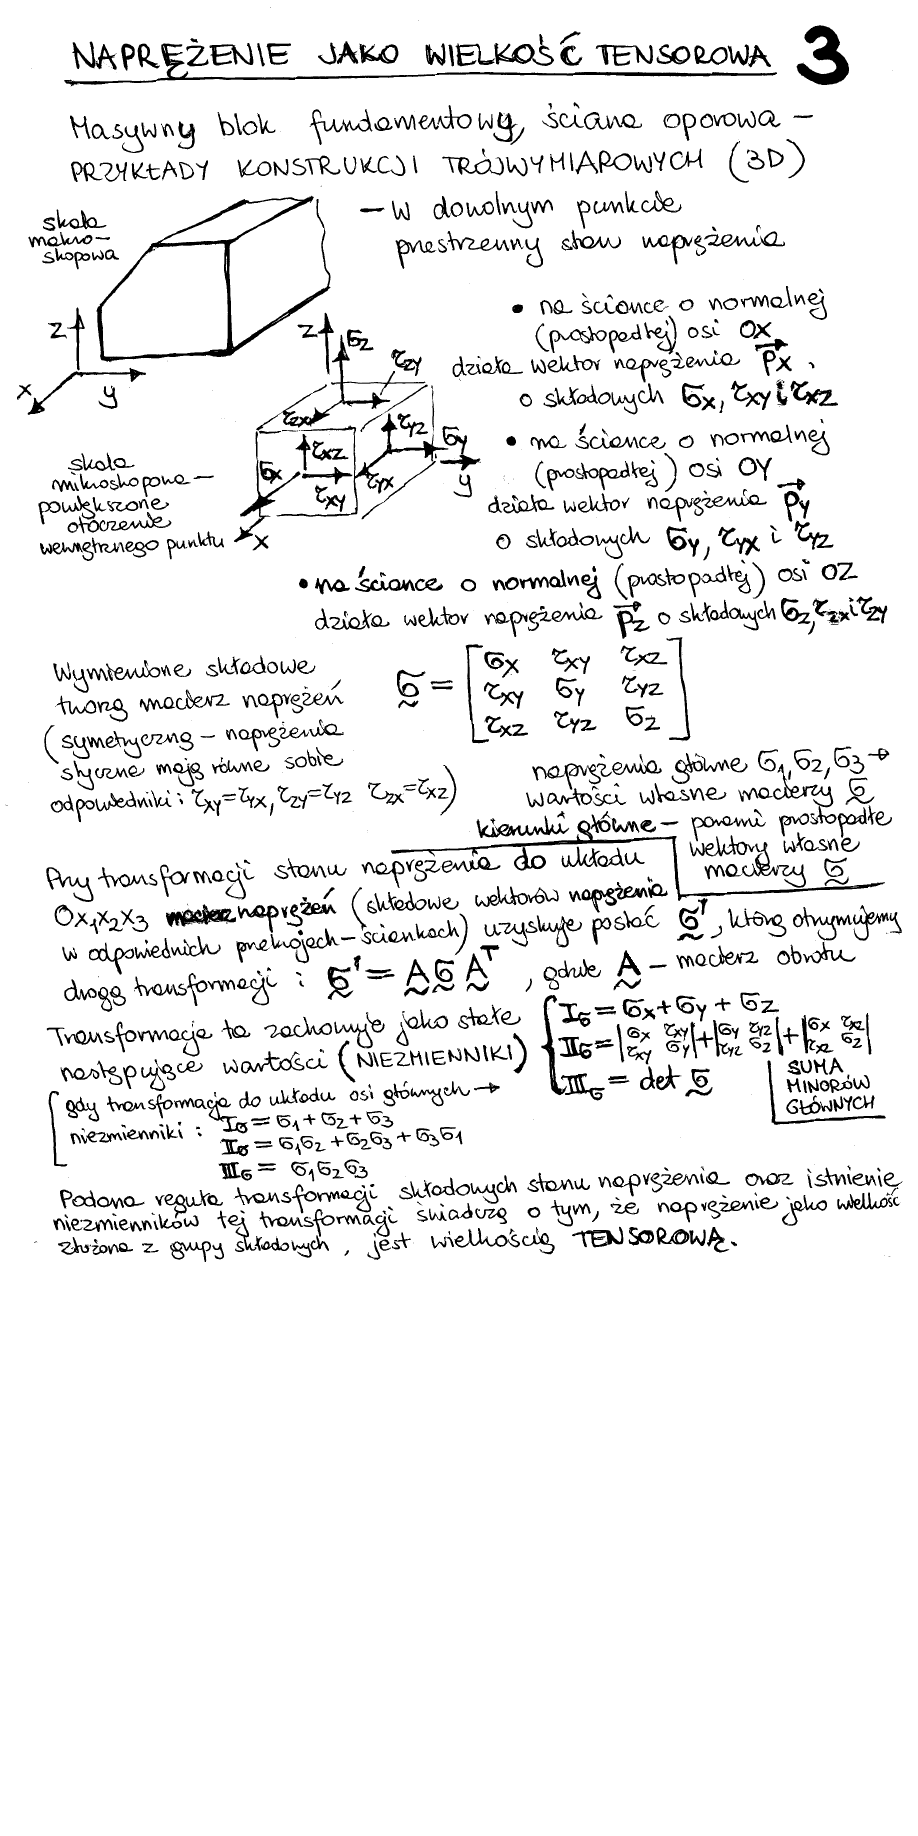 NAPRĘŻENIE JAKO WIELKOŚĆ TENSOROWA 3
Masywny blok fundamentowy, ściana oporowa –
PRZYKŁADY KONSTRUKCJI TRÓJWYMIAROWYCH (3D)
– w dowolnym punkcie
przestrzenny stan naprężenia
skala
makro–
skopowa
z
x
y
• na ściance o normalnej
(prostopadłej) osi OX
działa wektor naprężenia p⃗x,
o składowych σx, τxy i τxz
z
σz
τzy
τzx
τxz
τyz
σy
σx
τxy
τyx
y
x
skala
mikroskopowa –
powiększone
otoczenie
wewnętrznego punktu
• na ściance o normalnej
(prostopadłej) osi OY
działa wektor naprężenia p⃗y
o składowych σy, τyx i τyz
• na ściance o normalnej (prostopadłej) osi OZ
działa wektor naprężenia p⃗z o składowych σz, τzx i τzy
Wymienione składowe
tworzą macierz naprężeń
(symetryczną – naprężenia
styczne mają równe sobie
odpowiedniki: τxy=τyx, τzy=τyz τzx=τxz)
σ = [ σx τxy τxz
τxy σy τyz
τxz τyz σz ]
naprężenia główne σ1, σ2, σ3 →
wartości własne macierzy σ
kierunki główne – parami prostopadłe
wektory własne
macierzy σ
Przy transformacji stanu naprężenia do układu
Ox1x2x3 macierz naprężeń (składowe wektorów naprężenia
w odpowiednich przekrojach – ściankach) uzyskuje postać σ', którą otrzymujemy
drogą transformacji: σ' = A σ Aᵀ, gdzie A – macierz obrotu
Transformacja ta zachowuje jako stałe
następujące wartości (NIEZMIENNIKI)
Iσ = σx + σy + σz
IIσ = |σx τxy| + |σy τyz| + |σx τxz|
|τxy σy| |τyz σz| |τxz σz|
IIIσ = det σ
SUMA
MINORÓW
GŁÓWNYCH
gdy transformacja do układu osi głównych →
niezmienniki: Iσ = σ1 + σ2 + σ3
IIσ = σ1σ2 + σ2σ3 + σ3σ1
IIIσ = σ1σ2σ3
Podana reguła transformacji składowych stanu naprężenia oraz istnienie
niezmienników tej transformacji świadczą o tym, że naprężenie jako wielkość
złożona z grupy składowych, jest wielkością TENSOROWĄ.